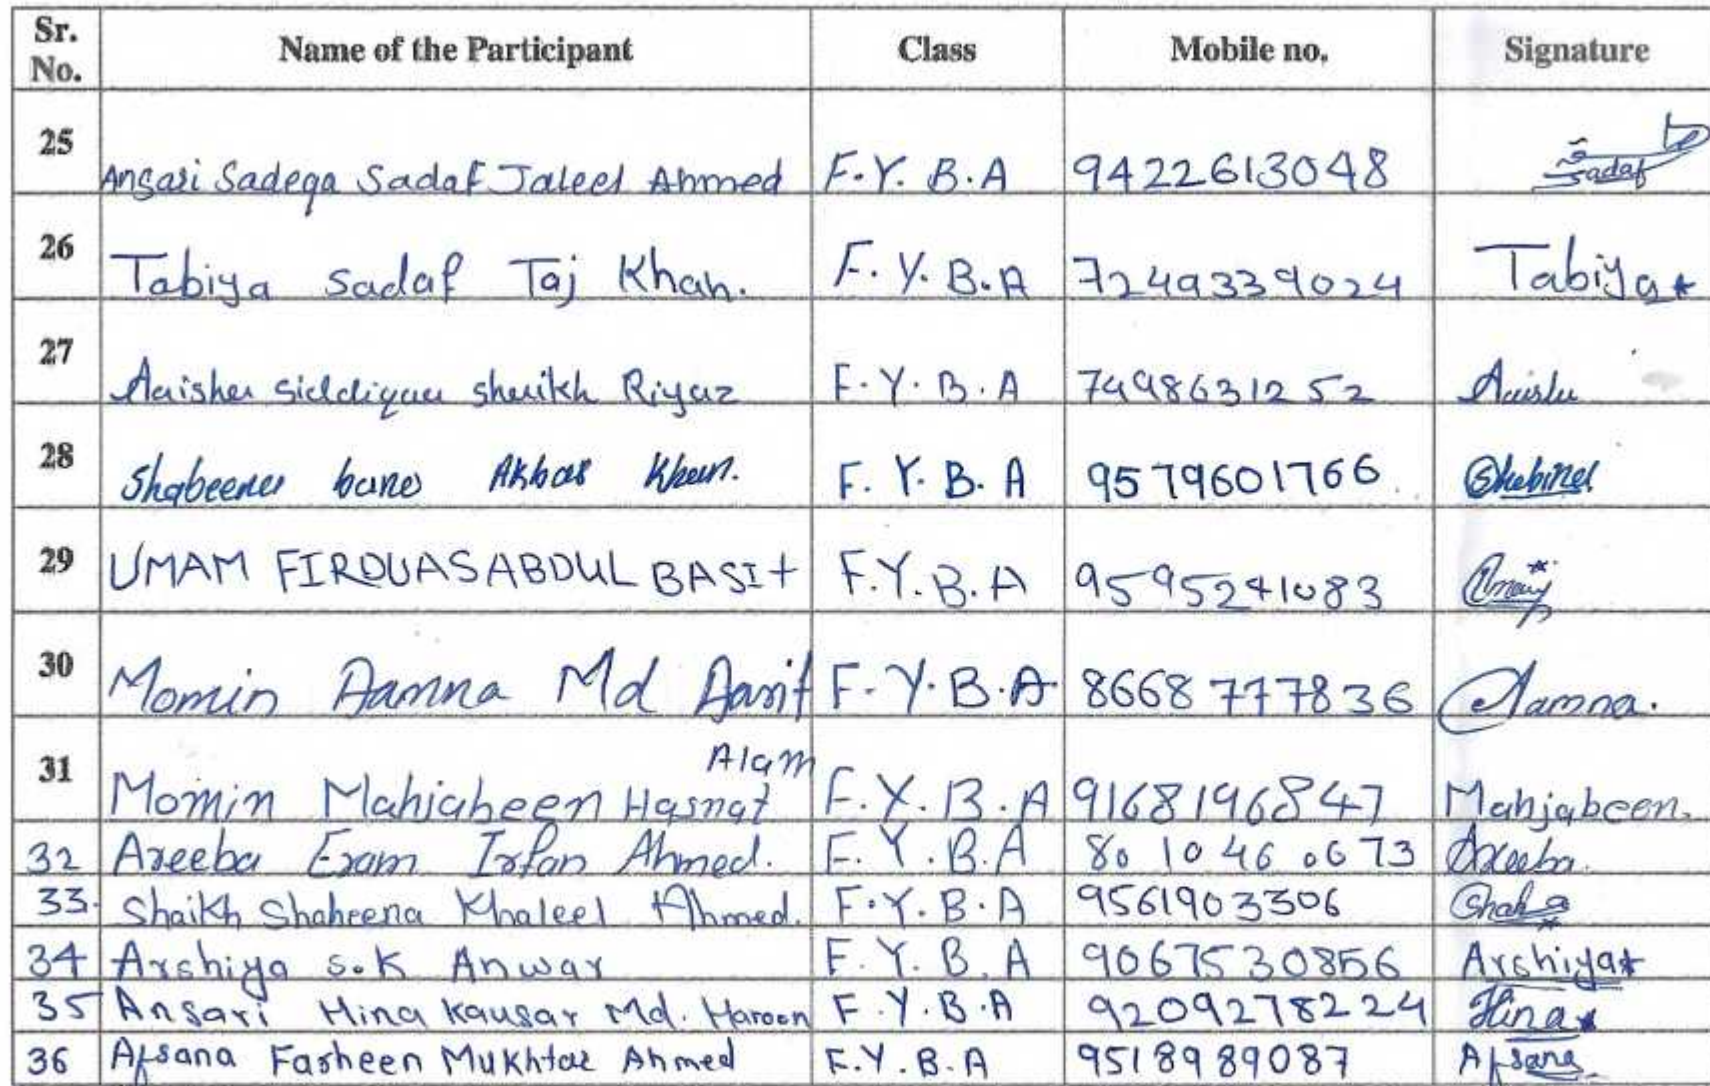 Sr. No. Name of the Participant Class Mobile no. Signature
25 Ansari Sadega Sadaf Jaleel Ahmed F.Y.B.A 9422613048 Sadaf
26 Tabiya Sadaf Taj Khan. F.Y.B.A 7249339024 Tabiya
27 Aaisha Siddiqua Shaikh Riyaz F.Y.B.A 7498631252 Aaisha
28 Shabeena bano Akbar Khan. F.Y.B.A 9579601766 Shabina
29 UMAM FIRDUAS ABDUL BASIt F.Y.B.A 9595241083
30 Momin Aamna Md Aasif F.Y.B.A 8668777836 Aamna.
31 Momin Mahjabeen Hasnat Alam F.Y.B.A 9168196847 Mahjabeen.
32 Areeba Eram Irfan Ahmed. F.Y.B.A 8010460673 Areeba.
33. Shaikh Shaheena Khaleel Ahmed. F.Y.B.A 9561903306
34 Arshiya S.K Anwar F.Y.B.A 9067530856 Arshiya
35 Ansari Hina Kausar Md. Haroon F.Y.B.A 9209278224 Hina
36 Afsana Farheen Mukhtar Ahmed F.Y.B.A 9518989087 Afsana